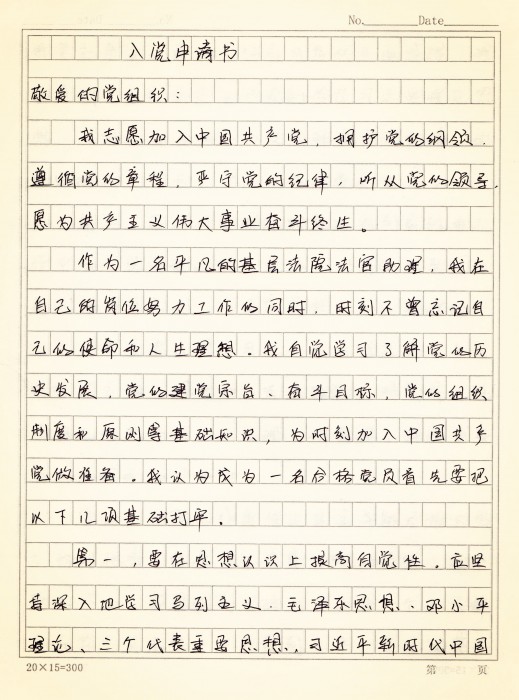 No.________Date________
入党申请书
敬爱的党组织：
我志愿加入中国共产党，拥护党的纲领，
遵循党的章程，严守党的纪律，听从党的领导，
愿为共产主义伟大事业奋斗终生。
作为一名平凡的基层法院法官助理，我在
自己的岗位努力工作的同时，时刻不曾忘记自
己的使命和人生理想。我自觉学习了解党的历
史发展，党的建党宗旨、奋斗目标，党的组织
制度和原则等基础知识，为时刻加入中国共产
党做准备。我认为成为一名合格党员首先要把
以下几项基础打牢。
第一，要在思想认识上提高自觉性。应坚
持深入地学习马列主义、毛泽东思想、邓小平
理论、三个代表重要思想，习近平新时代中国
20×15=300
第 页